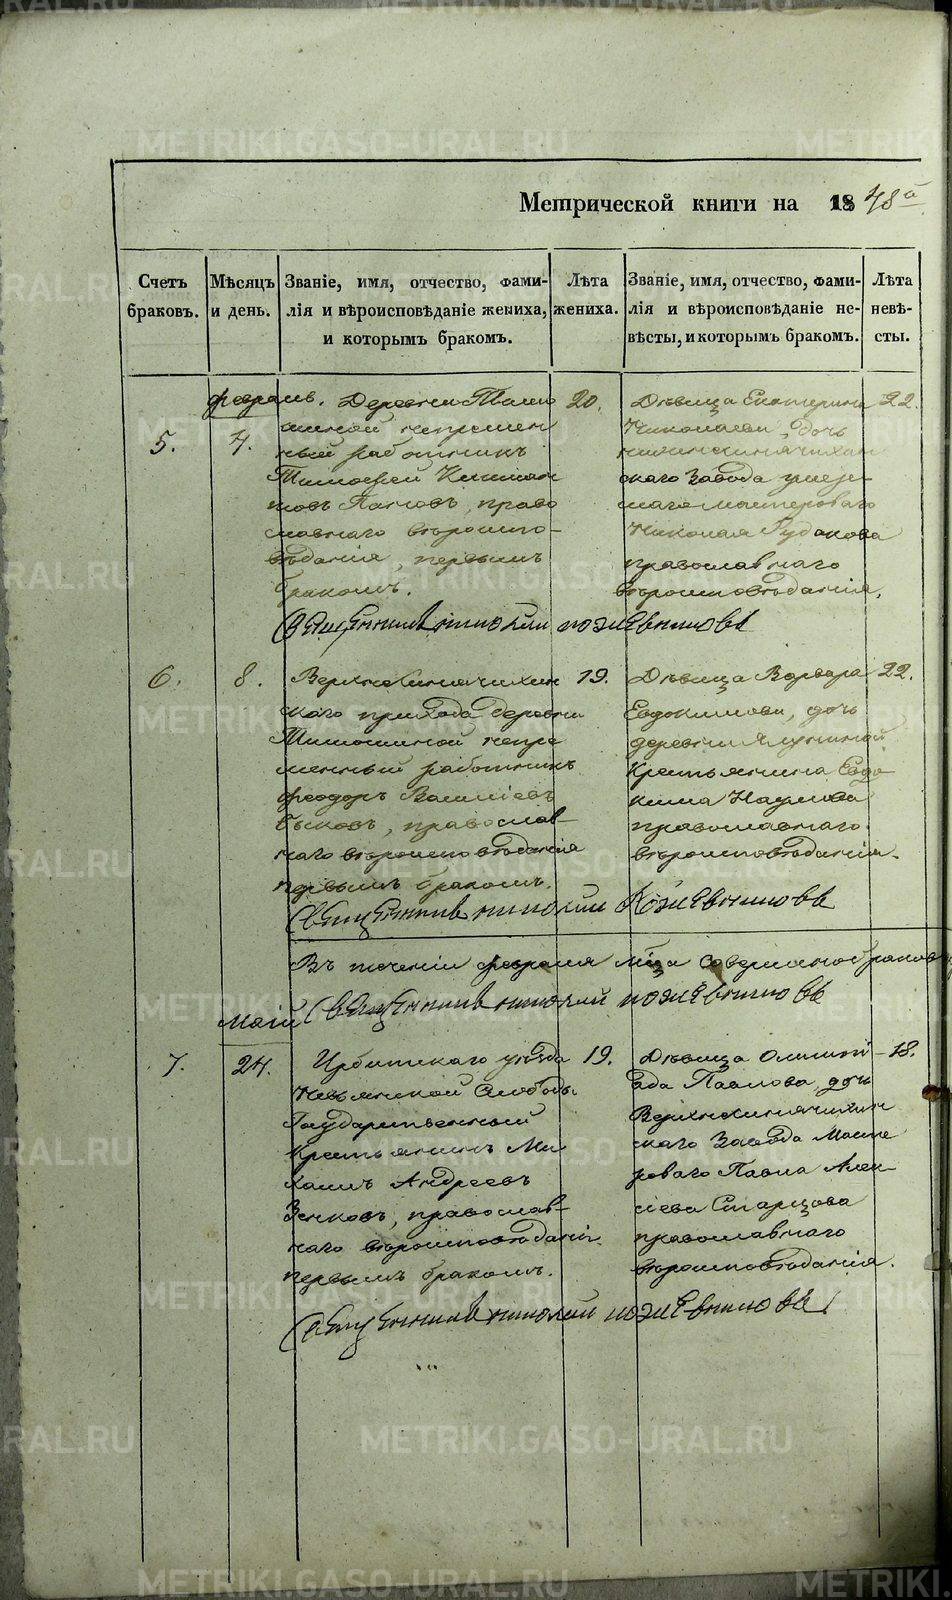 Метрической книги на 1848 а
Счетъ браковъ.
Мѣсяцъ и день.
Званіе, имя, отчество, фами-
лія и вѣроисповѣданіе жениха,
и которымъ бракомъ.
Лѣта жениха.
Званіе, имя, отчество, фами-
лія и вѣроисповѣданіе не-
вѣсты, и которымъ бракомъ.
Лѣта невѣ-
сты.
февраль.
5.
4.
Деревни Тимо
шиной непремен
ный работникъ
Тимофей
право
славнаго вѣроиспо-
вѣданія, первымъ
бракомъ.
20.
Дѣвица Екатерина
Николаева, дочь
скаго Завода умер-
шаго мастероваго
Николая Рудакова
православнаго
вѣроисповѣданія.
22.
Священникъ Николай Кожевниковъ
6.
8.
Верхнесинячихин
скаго прихода деревни
Тимошиной непре
менный работникъ
Феодоръ Василіевъ
Быковъ, православ-
наго вѣроисповѣданія
первымъ бракомъ.
19.
Дѣвица Варвара
Евдокимова, дочь
деревни
Крестьянина Евдо
кима Наумова
православнаго
вѣроисповѣданія.
22.
Священникъ Николай Кожевниковъ
Въ теченіи февраля мѣсяца совершено браков
Священникъ Николай Кожевниковъ
Маій
7.
24.
Ирбитскаго уѣзда
Невьянской Слободы
Государственный
Крестьянинъ Ми
хаилъ Андреевъ
Зенковъ, православ-
наго вѣроисповѣданія
первымъ бракомъ.
19.
Дѣвица Олимпі-
ада Павлова, дочь
Верхнесинячихин
скаго Завода Масте
роваго Павла Алек-
сіева Старцова
православнаго
вѣроисповѣданія.
18.
Священникъ Николай Кожевниковъ
METRIKI.GASO-URAL.RU